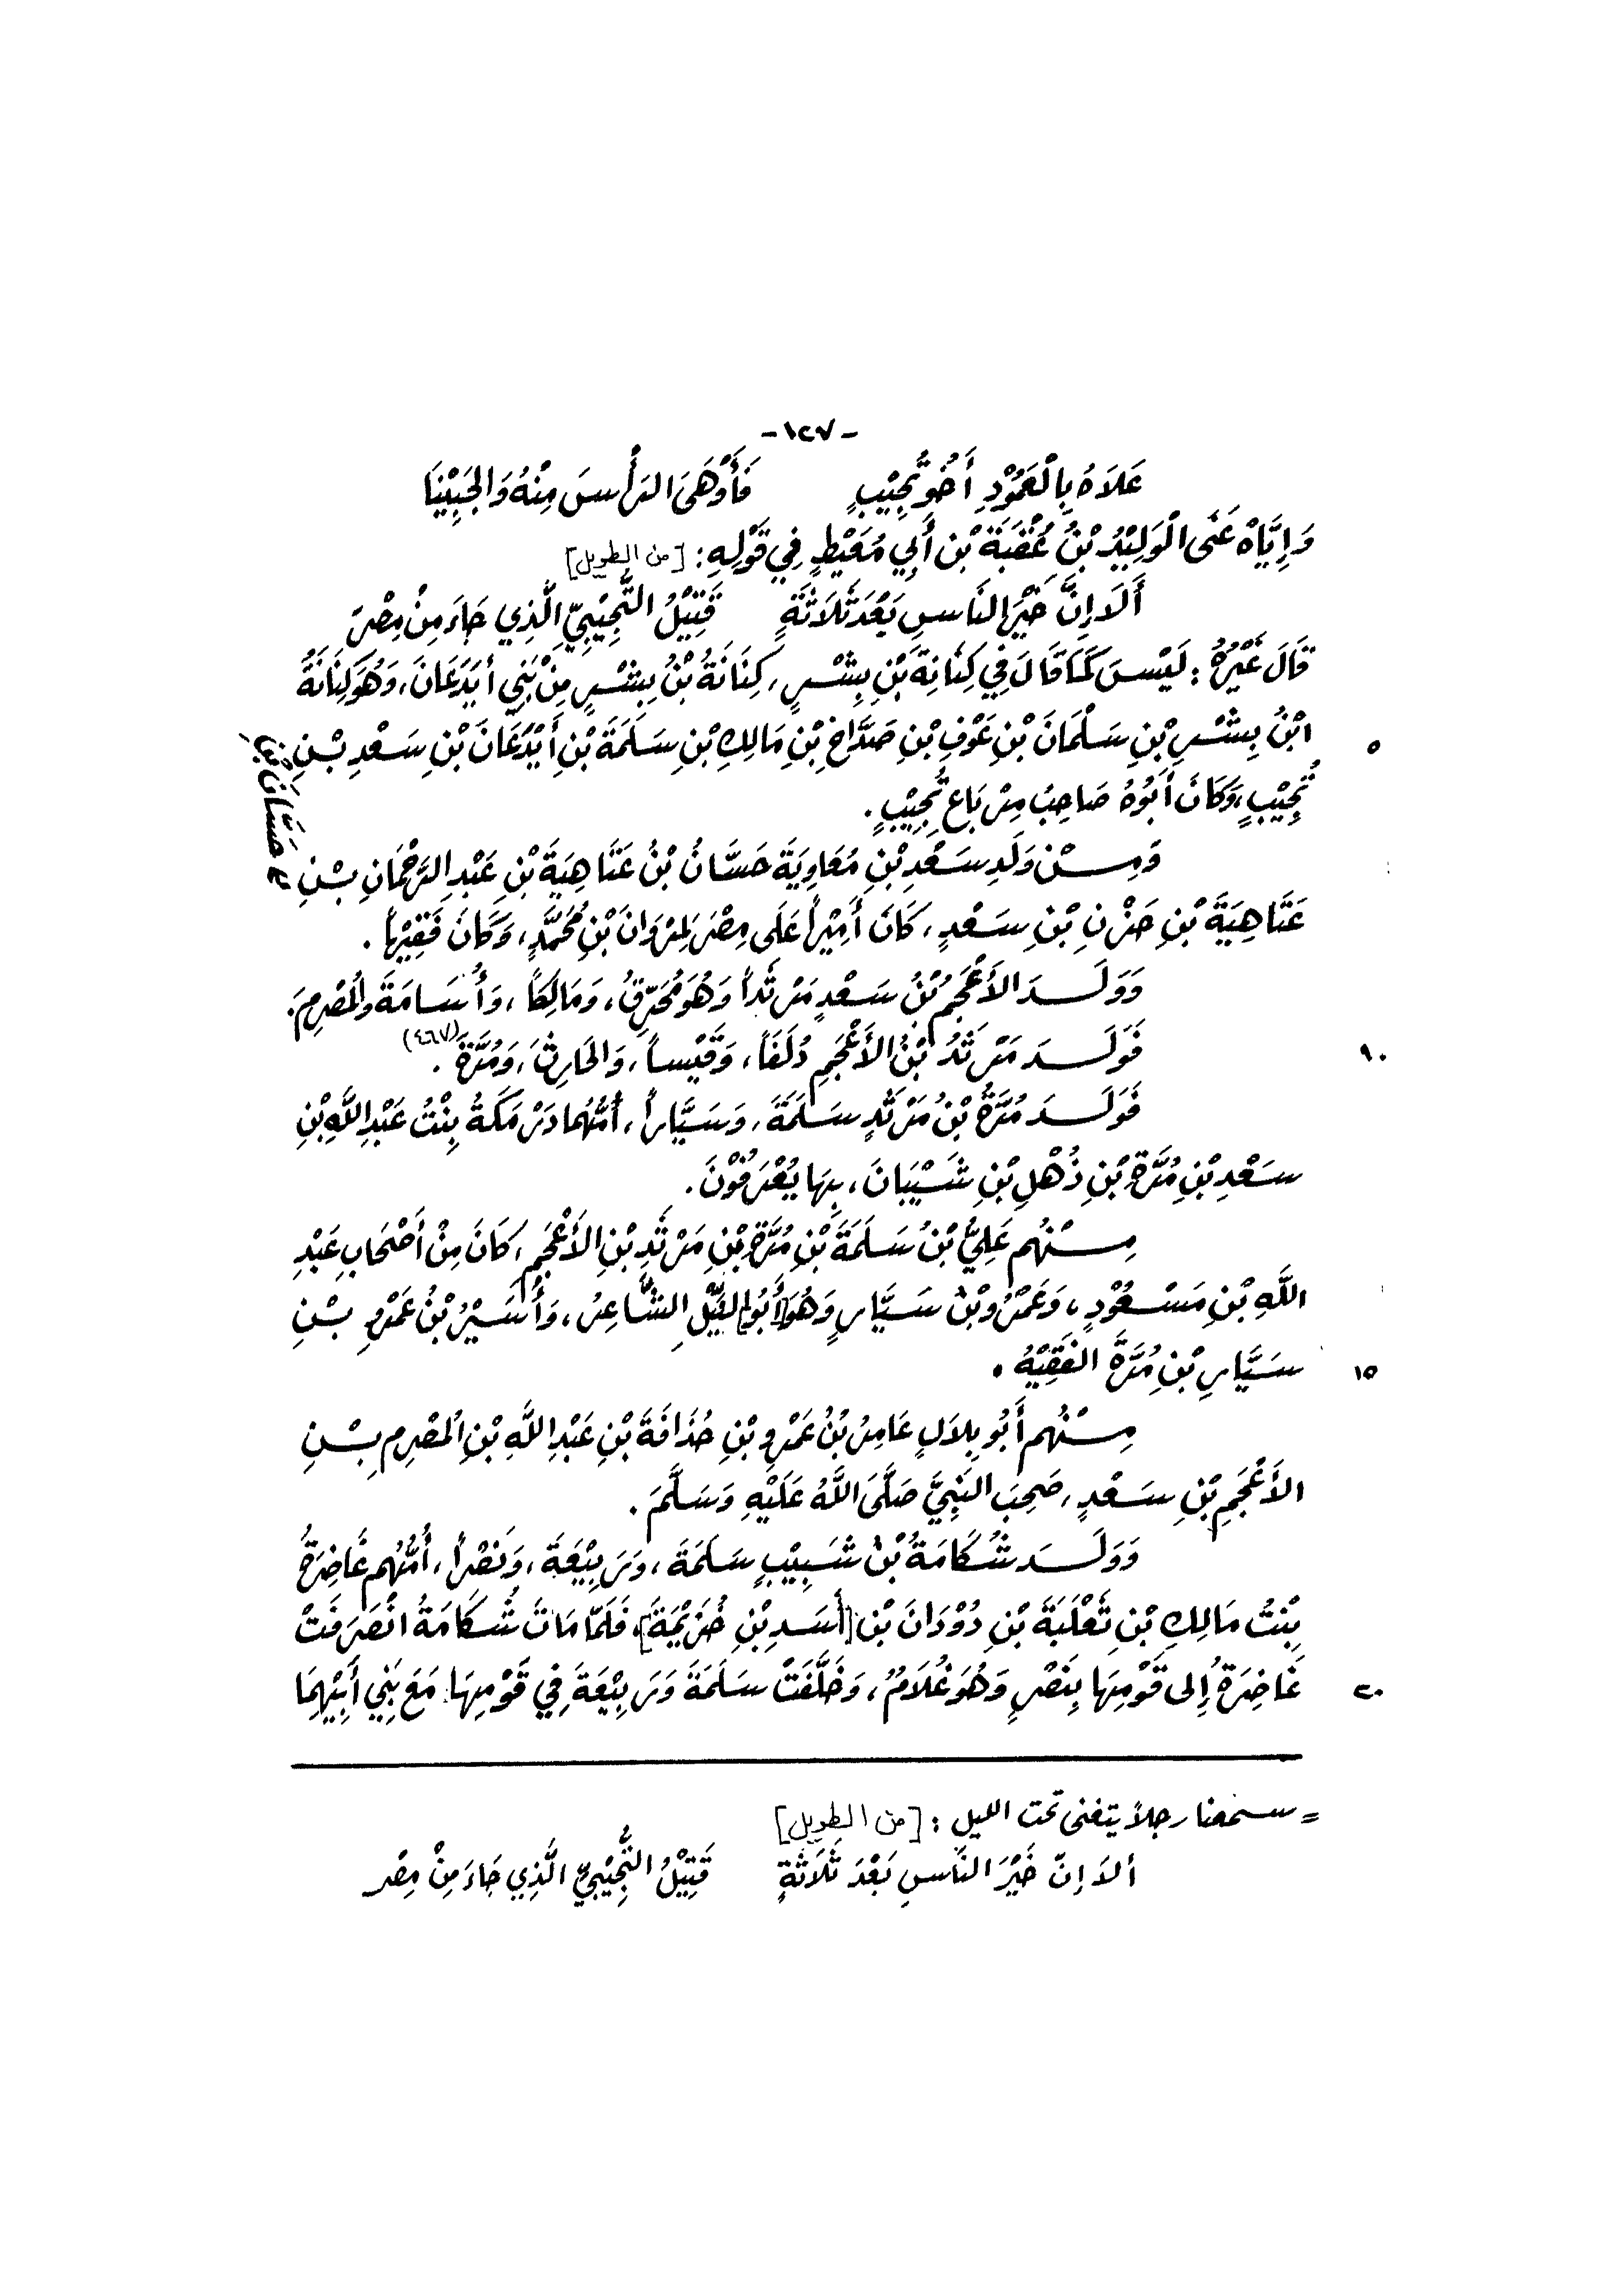 -١٢٧-
عَلَاهُ بِالْعَمُوْدِ أَخُو تُجِيْبٍ فَأَوْهَى الرَأْسَ مِنْهُ وَالجَبِيْنَا
وَإِيَّاهُ عَنَى الْوَلِيْدُ بْنُ عُقْبَةَ بْنِ أَبِي مُعَيْطٍ فِي قَوْلِهِ: [من الطويل]
أَلَا إِنَّ خَيْرَ النَاسِ بَعْدَ ثَلَاثَةٍ قَتِيْلُ التُّجِيْبِيِّ الَّذِي جَاءَ مِنْ مِصْرَ
قَالَ غَيْرُهُ: لَيْسَ كَمَا قَالَ فِي كِنَانَةَ بْنِ بِشْرٍ، كِنَانَةُ بْنُ بِشْرٍ مِنْ بَنِي أَيْدَعَانَ، وَهُوَ كِنَانَةُ
٥ ابْنُ بِشْرِ بْنِ سَلْمَانَ بْنِ عَوْفِ بْنِ صَدَّاخِ بْنِ مَالِكِ بْنِ سَلَمَةَ بْنِ أَيْدَعَانَ بْنِ سَعْدِ بْنِ
تُجِيْبٍ، وَكَانَ أَبُوهُ صَاحِبُ مِرْبَاعِ تُجِيْبٍ.
وَمِنْ وَلَدِ سَعْدِ بْنِ مُعَاوِيَةَ حَسَّانُ بْنُ عَتَاهِيَةَ بْنِ عَبْدِ الرَحْمَانِ بْنِ
حَسَّانَ بْنِ
عَتَاهِيَةَ بْنِ حَزْنِ بْنِ سَعْدٍ، كَانَ أَمِيْراً عَلَى مِصْرَ لِمَرْوَانَ بْنِ مُحَمَّدٍ، وَكَانَ فَقِيْهاً.
وَوَلَدَ الأَعْجَمُ بْنُ سَعْدٍ مَرْثَداً وَهُوَ مُحَرِّقٌ، وَمَالِكاً، وَأُسَامَةَ والْمُصْرِمَ.
١٠ فَوَلَدَ مَرْثَدُ بْنُ الأَعْجَمِ دُلَفاً، وَقَيْساً، وَالحَارِثَ، وَمُرَّةَ. (٤٦٧)
فَوَلَدَ مُرَّةُ بْنُ مَرْثَدٍ سَلَمَةَ، وَسَيَّاراً، أُمُّهُمَا دَرْمَكَةُ بِنْتُ عَبْدِ اللَّهِ بْنِ
سَعْدِ بْنِ مُرَّةَ بْنِ ذُهْلِ بْنِ شَيْبَانَ، بِهَا يُعْرَفُوْنَ.
مِنْهُم عَلِيُّ بْنُ سَلَمَةَ بْنِ مُرَّةَ بْنِ مَرْثَدِ بْنِ الأَعْجَمِ، كَانَ مِنْ أَصْحَابِ عَبْدِ
اللَّهِ بْنِ مَسْعُوْدٍ، وَعَمْرُو بْنُ سَيَّارٍ وَهُوَ أَبُو اللَّيْلِ الشَّاعِرُ، وَأُسَيْرُ بْنُ عَمْرِو بْنِ
١٥ سَيَّارِ بْنِ مُرَّةَ الفَقِيْهُ.
مِنْهُم أَبُو بِلَالٍ عَامِرُ بْنُ عَمْرِو بْنِ حُذَافَةَ بْنِ عَبْدِ اللَّهِ بْنِ الْمُصْرِمِ بْنِ
الأَعْجَمِ بْنِ سَعْدٍ، صَحِبَ النَبِيَّ صَلَّى اللَّهُ عَلَيْهِ وَسَلَّمَ.
وَوَلَدَ شُكَامَةُ بْنُ شَبِيْبٍ سَلَمَةَ، وَرَبِيْعَةَ، وَنَصْراً، أُمُّهُم غَاضِرَةُ
بِنْتُ مَالِكِ بْنِ ثَعْلَبَةَ بْنِ دُوْدَانَ بْنِ [أَسَدِ بْنِ خُزَيْمَةَ]، فَلَمَّا مَاتَ شُكَامَةُ انْصَرَفَتْ
٢٠ غَاضِرَةُ إِلى قَوْمِهَا بِنَصْرٍ وَهُوَ غُلَامٌ، وَخَلَّفَتْ سَلَمَةَ وَرَبِيْعَةَ فِي قَوْمِهَا مَعَ بَنِي أَبِيْهِمَا
= سمعنا رجلاً يتغنى تحت الليل: [من الطويل]
ألاَ إنّ خَيْرَ النَاسِ بَعْدَ ثَلَاثَةٍ قَتِيْلُ التُّجِيْبِيِّ الَّذِي جَاءَ مِنْ مِصْر